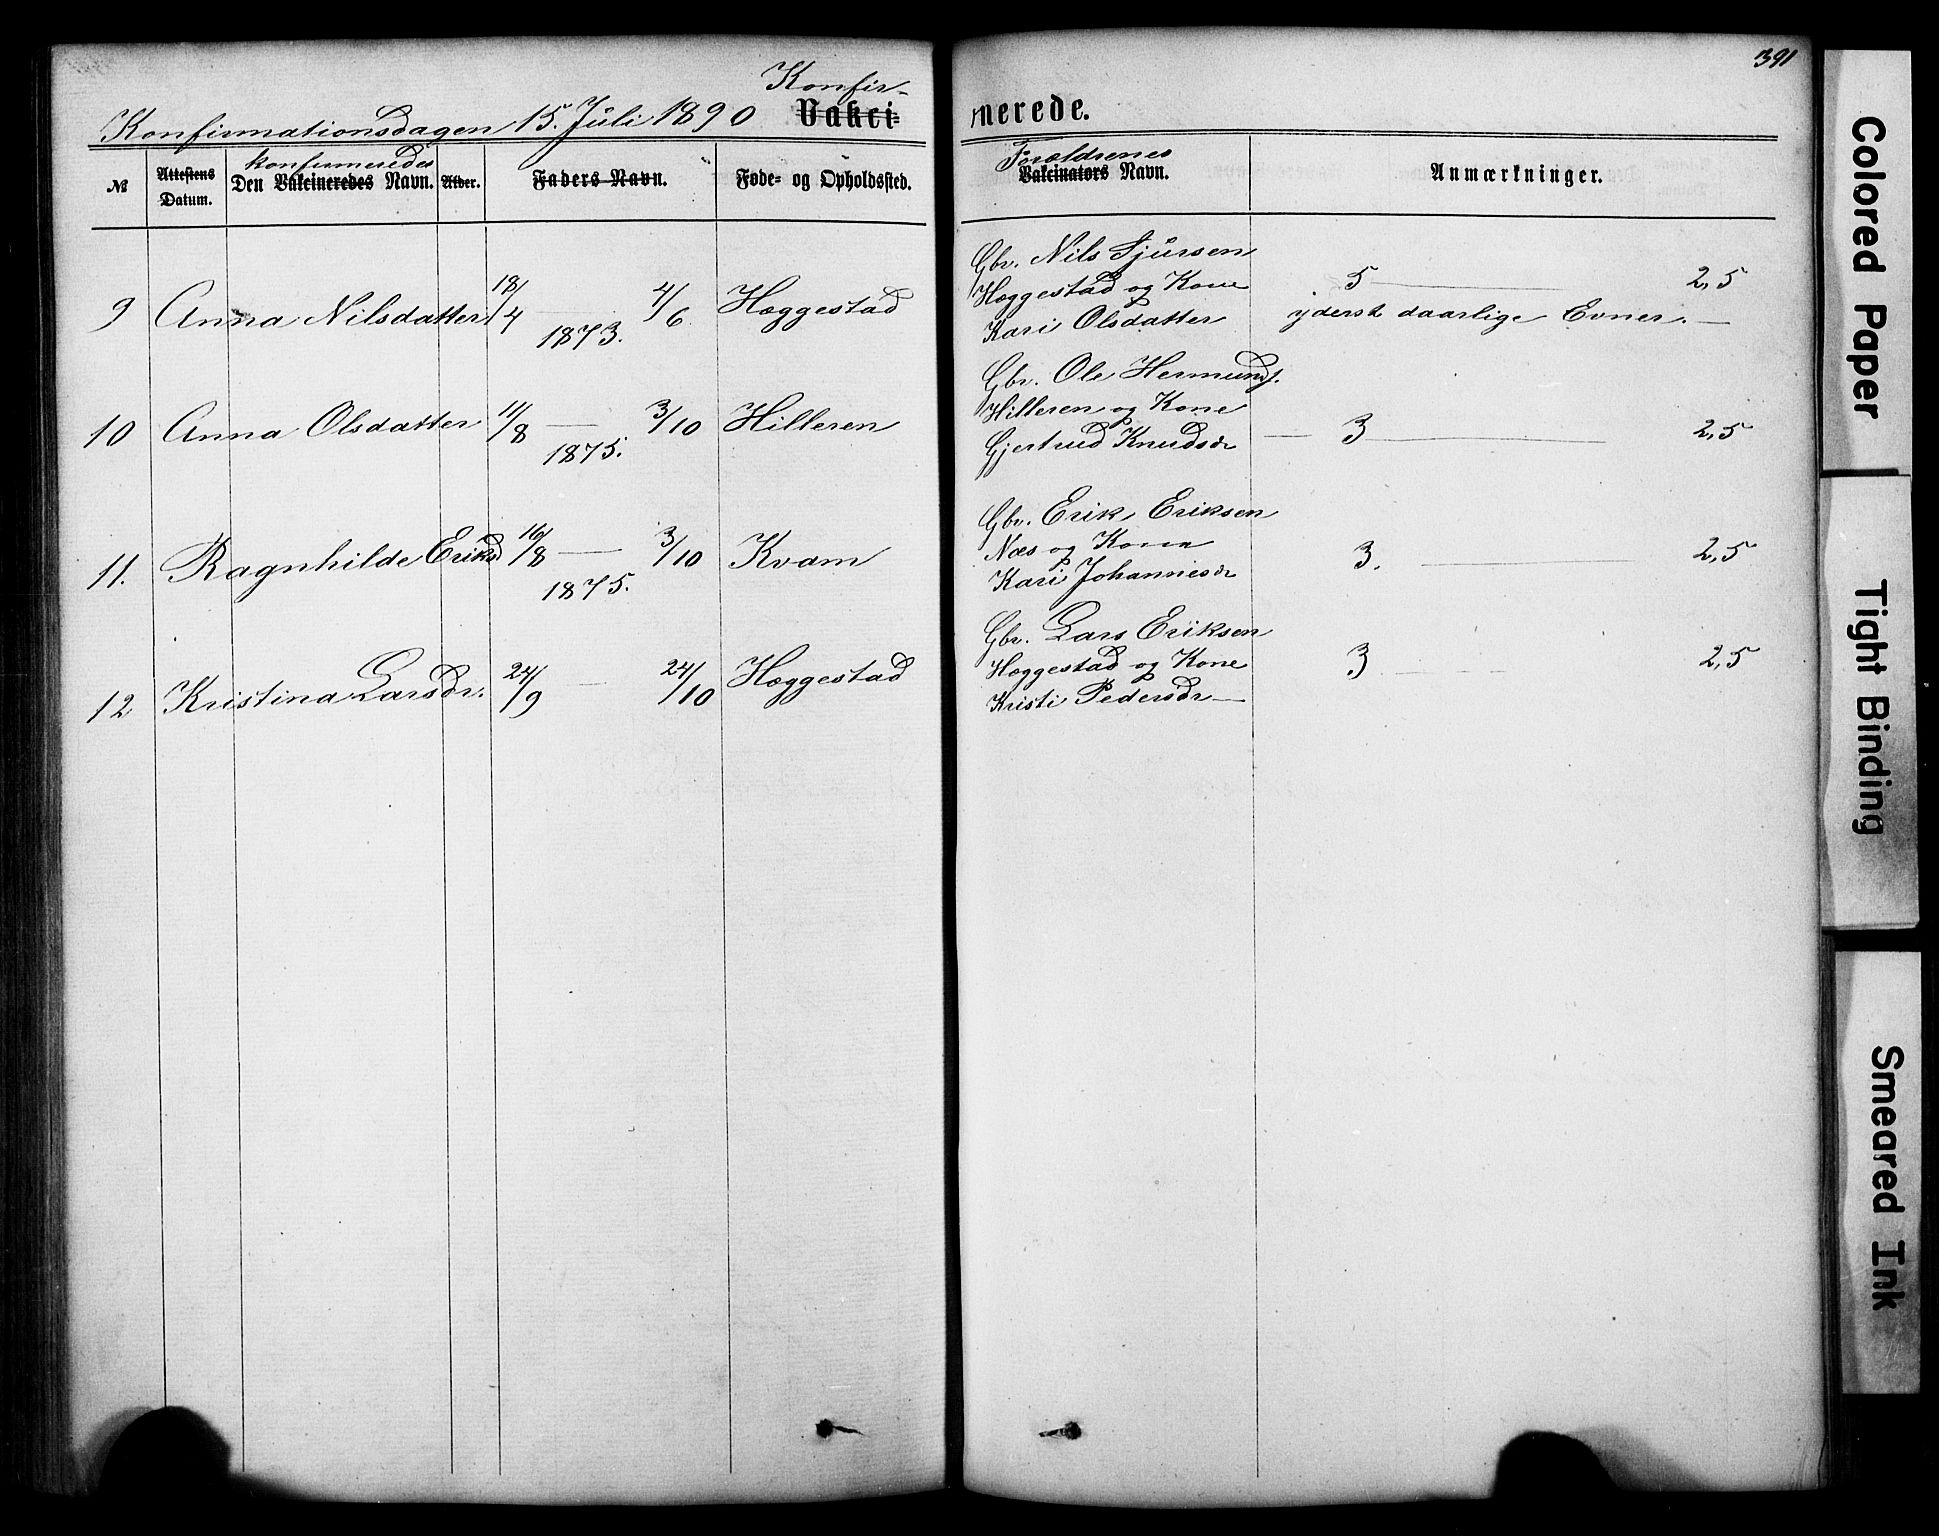 391
Konfir-
Konfirmationsdagen 15. Juli 1890 Vakci=
nerede.
№
Attestens Datum.
konfirmeredes
Den Vakcineredes Navn.
Alder.
Faders Navn.
Føde- og Opholdssted.
Forældrenes
Vakcinators Navn.
Anmærkninger.
9 Anna Nilsdatter 18/4 — 1873. 4/6 Hæggestad
Gbr. Nils Sjursen
Hæggestad og Kone
Kari Olsdatter
5 — 2,5
yderst daarlige Evner. —
10 Anna Olsdatter 11/8 — 1875. 3/10 Hilleren
Gbr. Ole Hermunds.
Hilleren og Kone
Gjertrud Knudsdr
— 3 — 2,5
11. Ragnhilde Eriksd 16/8 — 1875. 3/10 Kvam
Gbr. Erik Eriksen
Næs og Kone
Kari Johannesdr
3. — 2,5
12 Kristina Larsdr. 24/9 — 24/10 Hæggestad
Gbr. Lars Eriksen
Hæggestad og Kone
Kristi Pedersdr —
3 — 2,5
Colored Paper
Tight Binding
Smeared Ink